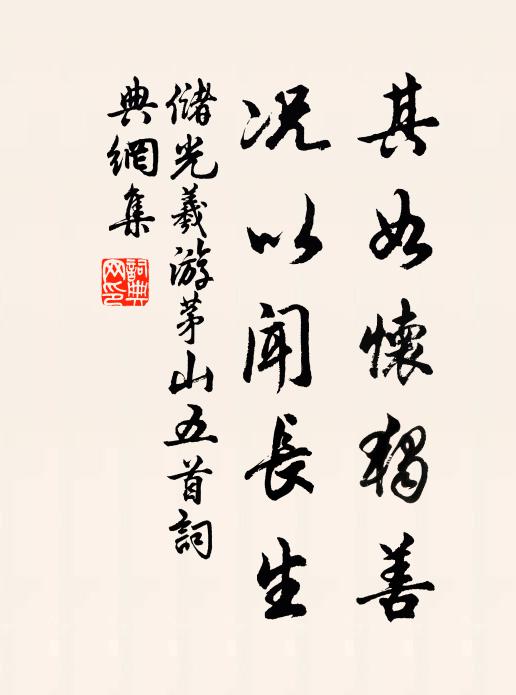 其如懷獨善
況以聞長生
儲光羲游茅山五首詞
典網集
詞典
网印